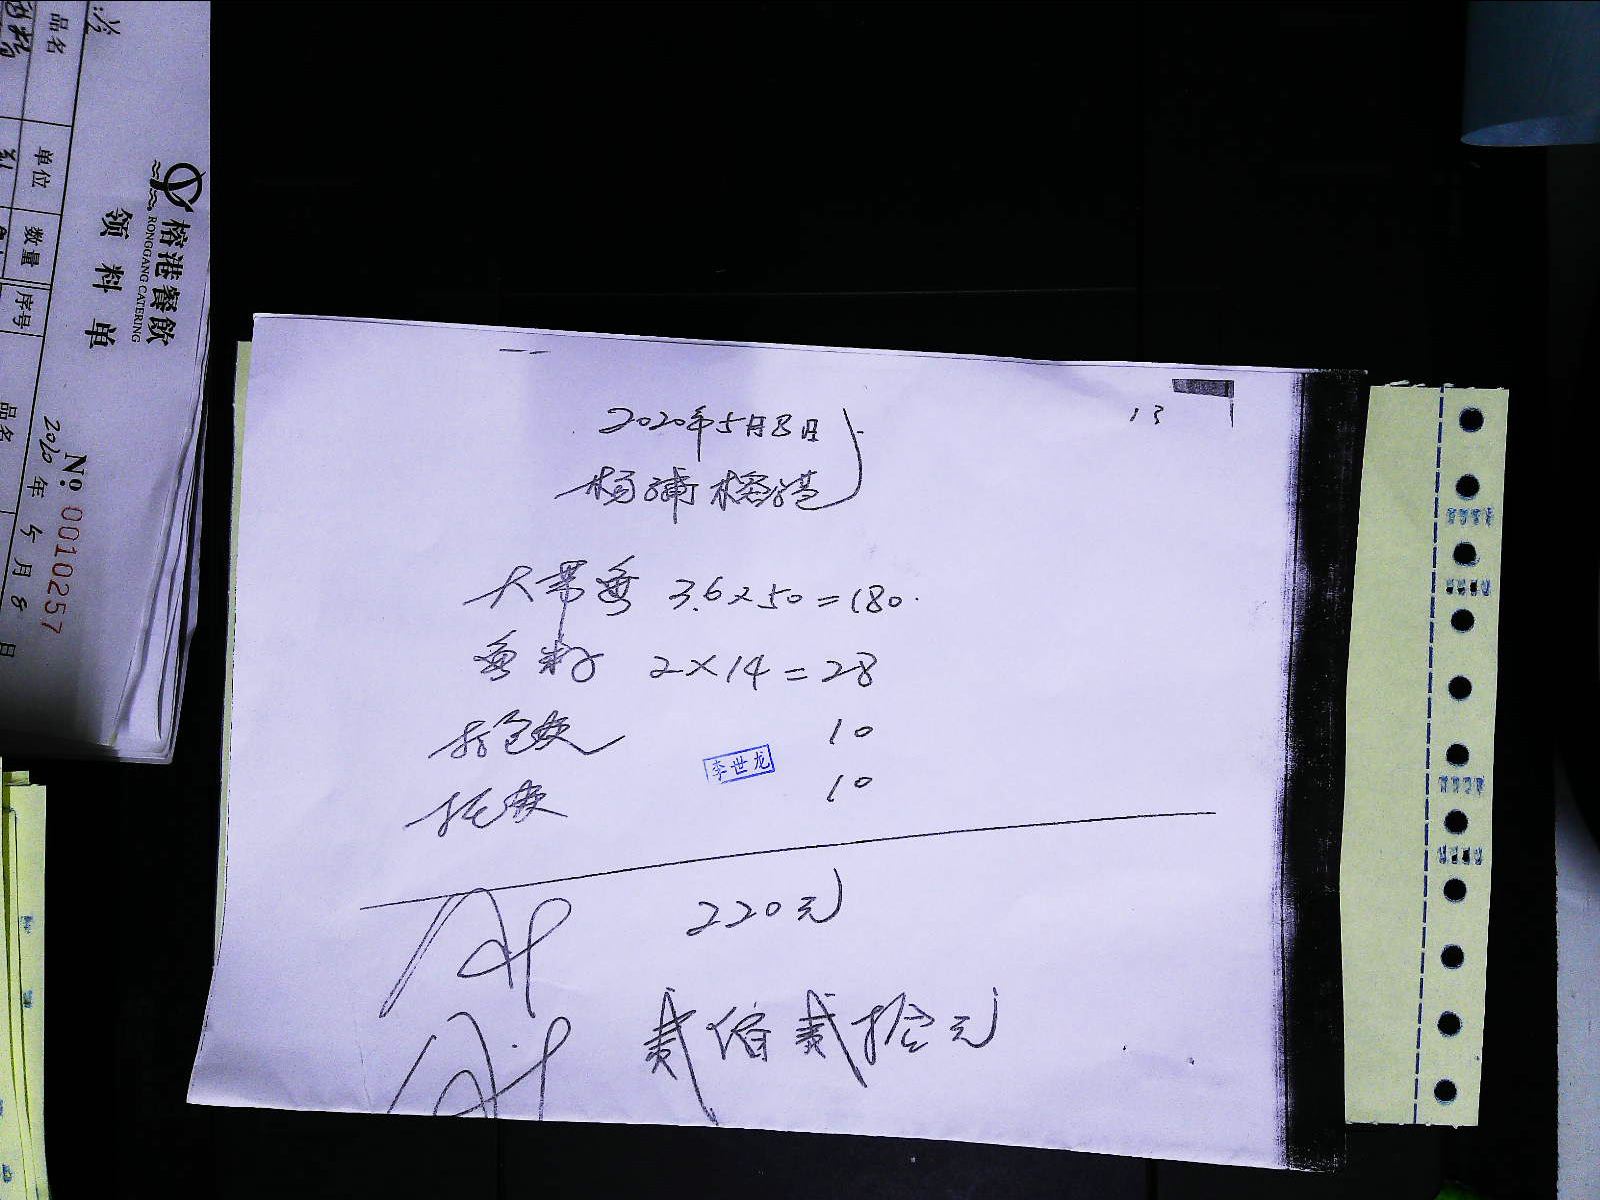 榕港餐飲
RONGGANG CATERING
领料单
No. 0010257
2020年5月8日
品名
单位
数量
序号
品名
13
2020年5月8日
杨浦榕港
大带鱼 3.6×50=180.
鱼籽 2×14=28
打包费 10
托费 10
李世龙
220元
贰佰贰拾元